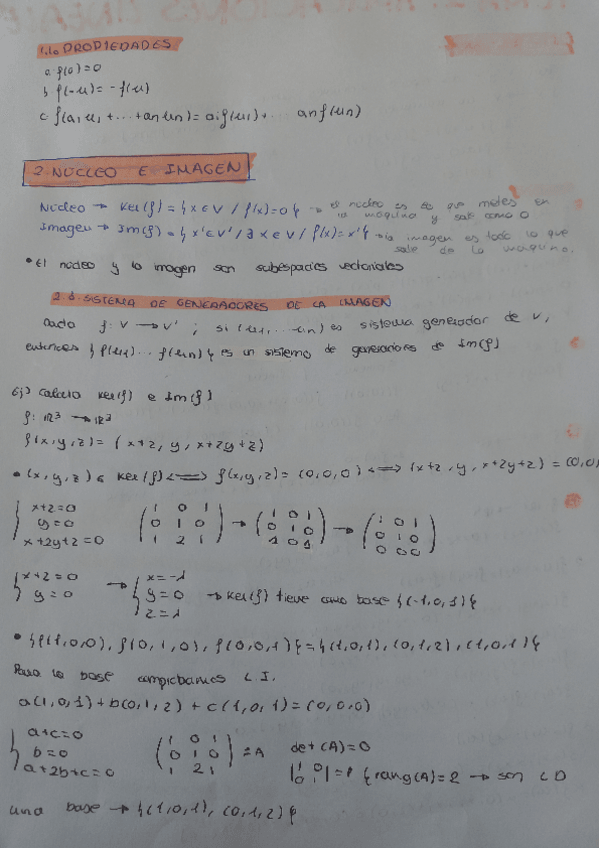 1.6 PROPIEDADES
a. f(0)=0
b. f(-u)= -f(u)
c. f(a₁u₁+...+anun)= a₁f(u₁)+... anf(un)
2. NUCLEO E IMAGEN
Nucleo → Ker(f) = { x ∈ V / f(x)=0 } → el nucleo es lo que metes en la maquina y sale como 0
Imagen → Im(f) = { x' ∈ V' / ∃ x ∈ V / f(x)=x' } → la imagen es todo lo que sale de la maquina.
• El nucleo y la imagen son subespacios vectoriales
SISTEMA DE GENERADORES DE LA IMAGEN
Dado f: V → V' ; si (u₁, ... un) es sistema generador de V,
entonces { f(u₁) ... f(un) } es un sistema de generadores de Im(f)
Ej) Calculo Ker(f) e Im(f)
f: ℝ³ → ℝ³
f(x,y,z) = (x+z, y, x+2y+z)
• (x,y,z) ∈ Ker(f) ⟺ f(x,y,z) = (0,0,0) ⟺ (x+z, y, x+2y+z) = (0,0,
{ x+z=0 ( 1 0 1 ) → ( 1 0 1 ) → ( 1 0 1 )
y=0 ( 0 1 0 ) ( 0 1 0 ) ( 0 1 0 )
x+2y+z=0 ( 1 2 1 ) ( 1 0 1 ) ( 0 0 0 )
{ x+z=0 → { x=-λ
y=0 y=0 → Ker(f) tiene como base { (-1,0,1) }
z=λ
• { f(1,0,0), f(0,1,0), f(0,0,1) } = { (1,0,1), (0,1,2), (1,0,1) }
Para la base comprobamos L.I.
a(1,0,1)+b(0,1,2)+c(1,0,1)=(0,0,0)
{ a+c=0 ( 1 0 1 )
b=0 ( 0 1 0 ) = A det(A)=0
a+2b+c=0 ( 1 2 1 ) | 1 0 / 0 1 | = 1 { rang(A)=2 → son LD
una base → { (1,0,1), (0,1,2) }